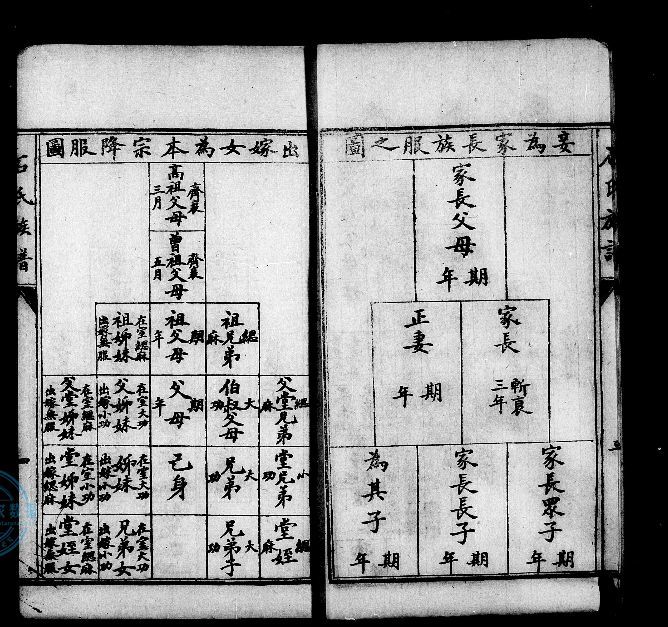 妾為家長族服之圖
家長父母
期年
家長
斬衰三年
正妻
期年
家長眾子
期年
家長長子
期年
為其子
期年
出嫁女為本宗降服圖
高祖父母
齊衰三月
曾祖父母
齊衰五月
祖兄弟
緦麻
祖父母
期年
祖姊妹
在室緦麻
出嫁無服
父堂兄弟
緦麻
伯叔父母
大功
父母
期年
父姊妹
在室大功
出嫁小功
父堂姊妹
在室緦麻
出嫁無服
堂兄弟
小功
兄弟
大功
己身
姊妹
在室大功
出嫁小功
堂姊妹
在室小功
出嫁緦麻
堂姪
緦麻
兄弟子
大功
兄弟女
在室大功
出嫁小功
堂姪女
在室緦麻
出嫁無服
石氏族譜
一